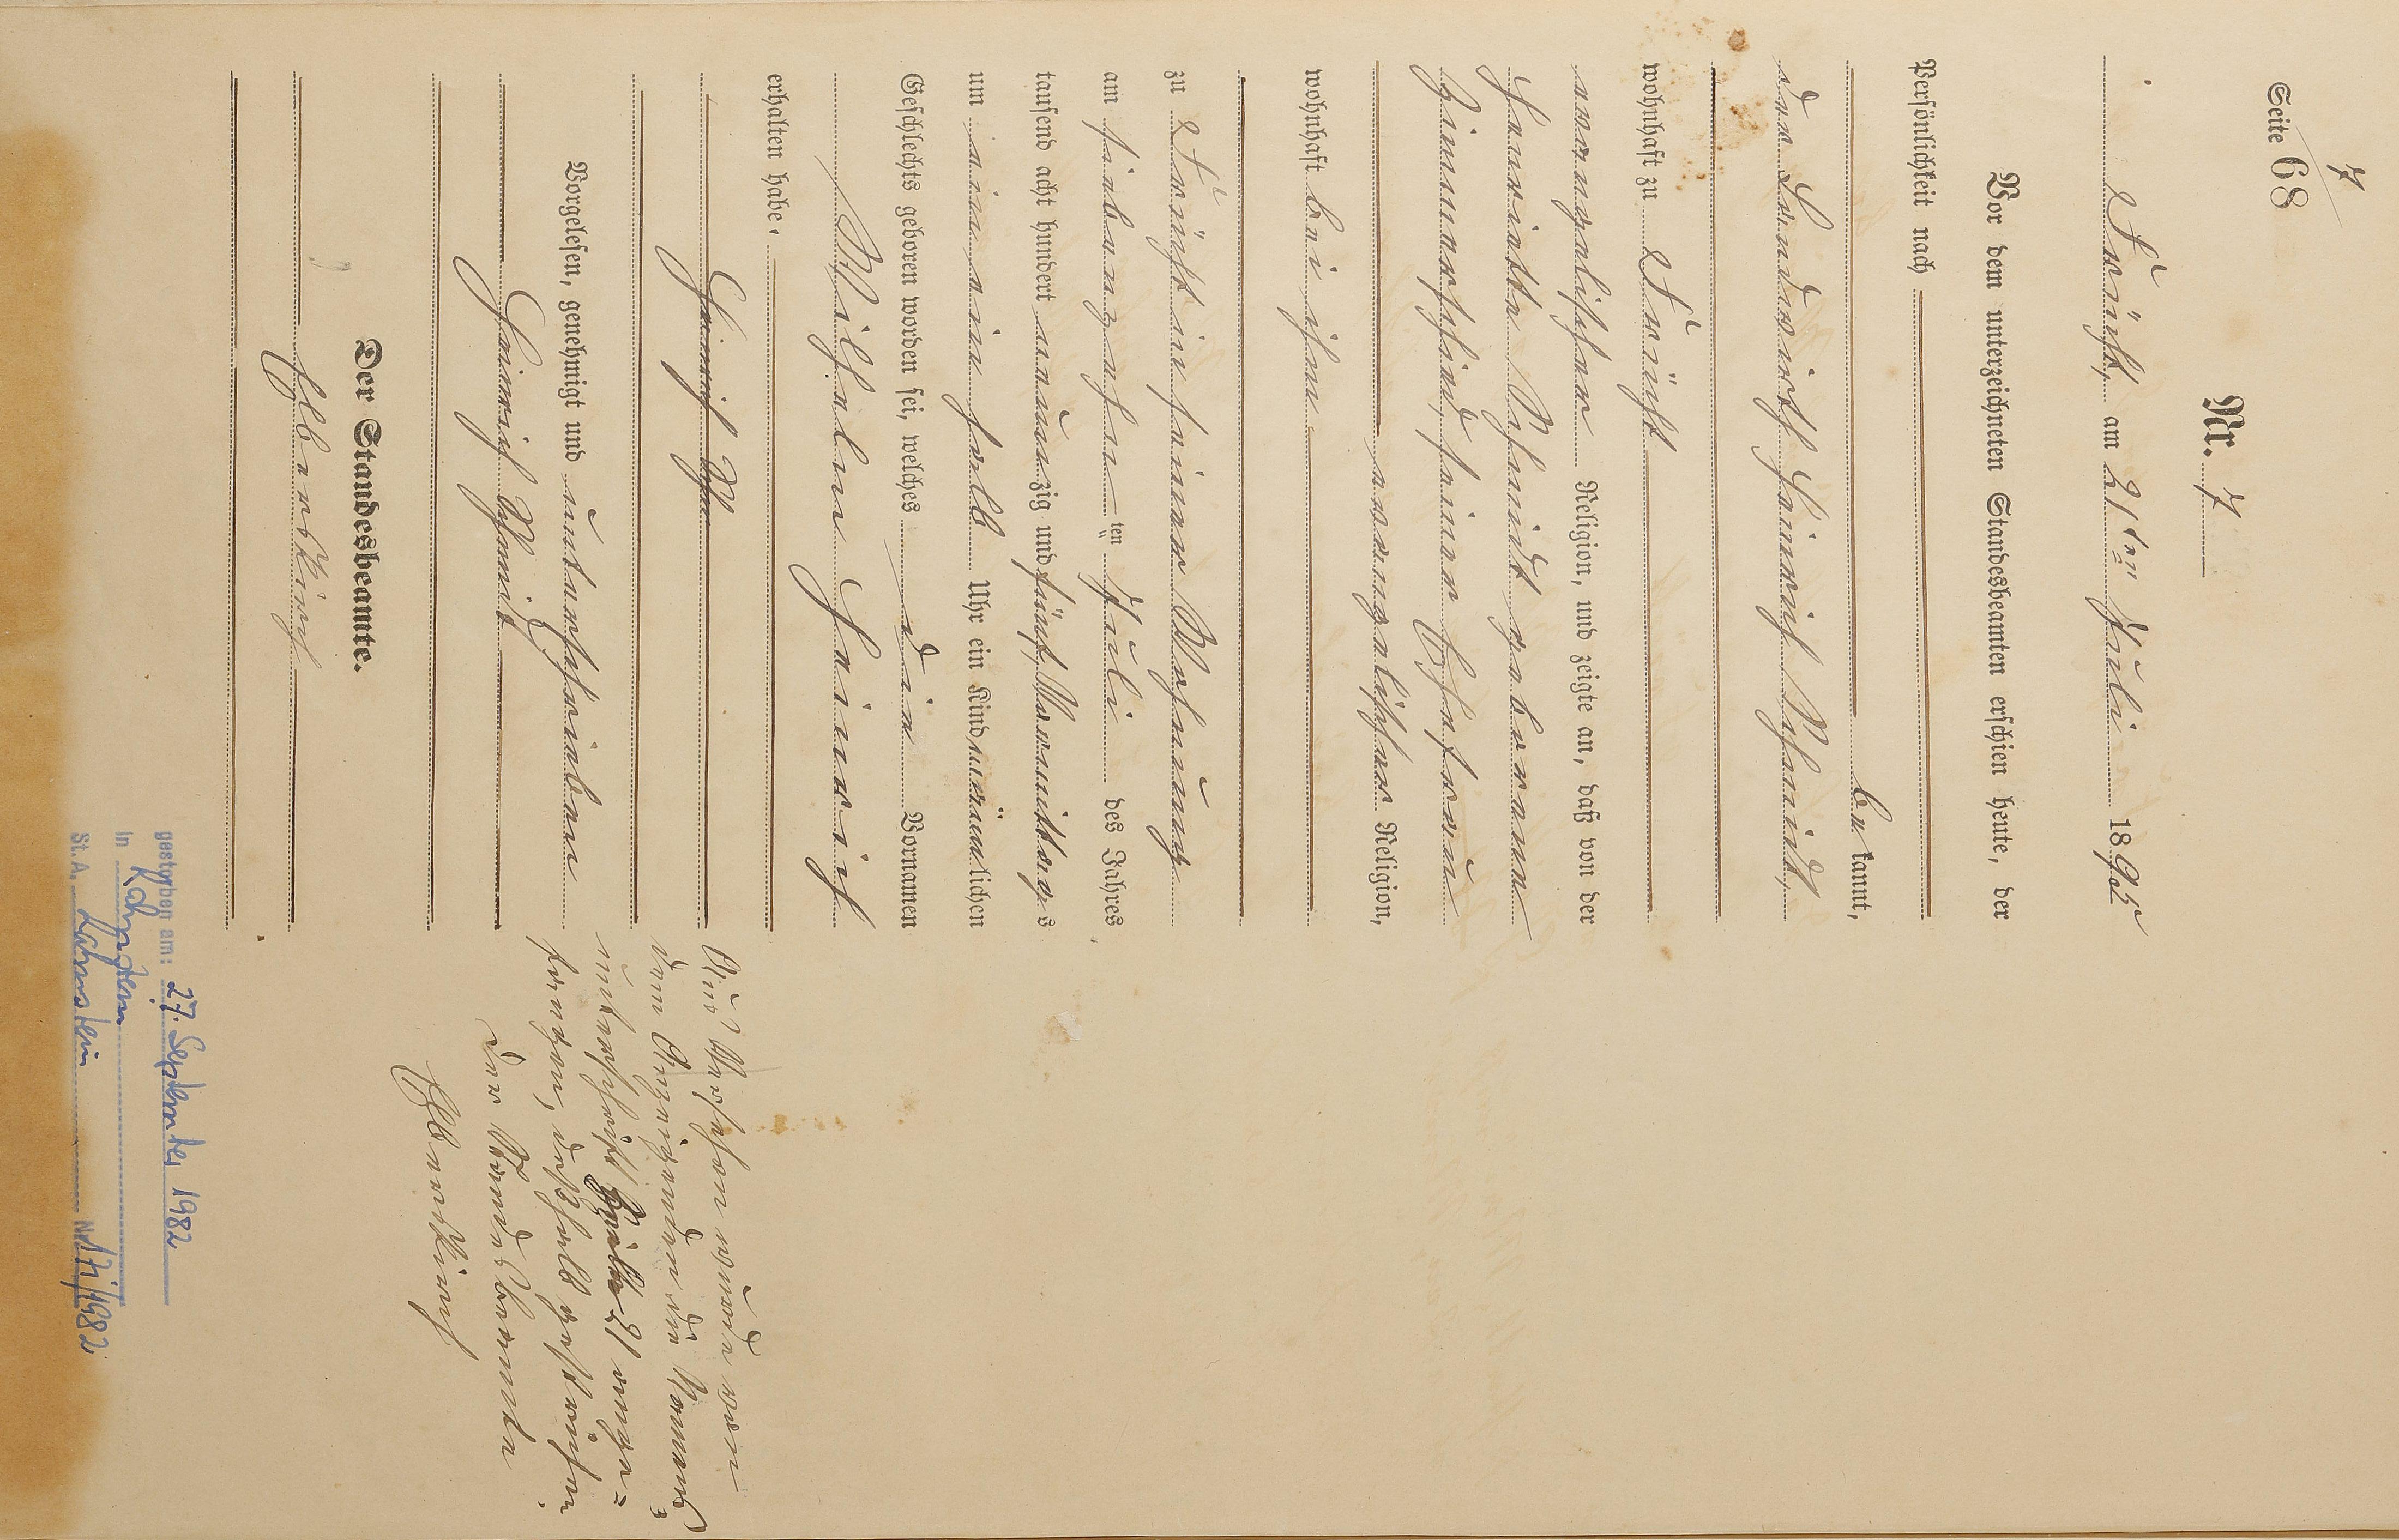 7
Seite 68
Nr. 7
Frücht, am 21ten Juli 1895
Vor dem unterzeichneten Standesbeamten erschien heute, der
Persönlichkeit nach
be kannt,
der Landwirth Heinrich Schmidt,
wohnhaft zu Frücht
evangelischer Religion, und zeigte an, daß von der
Henriette Schmidt geborenen
Zimmerschied, seiner Ehefrau
evangelischer Religion,
wohnhaft bei ihm
zu Frücht in seiner Wohnung
am siebenzehn ten Juli des Jahres
tausend acht hundert neunzig und fünf, Vormittags
um ein ein halb Uhr ein Kind männlichen
Geschlechts geboren worden sei, welches die Vornamen
Wilhelm Heinrich
erhalten habe.
Heinrich Schm
Vorgelesen, genehmigt und unterschrieben
Heinrich Schmidt
Der Standesbeamte.
Aus Versehen wurde von
dem Anzeigenden die Namens-
unterschrift Zeile 21 ange-
fangen, deßhalb gestrichen.
Der Standesbeamte
gestorben am: 27. September 1982
in Lahnstein
St.A. Lahnstein Nr. 171/1982